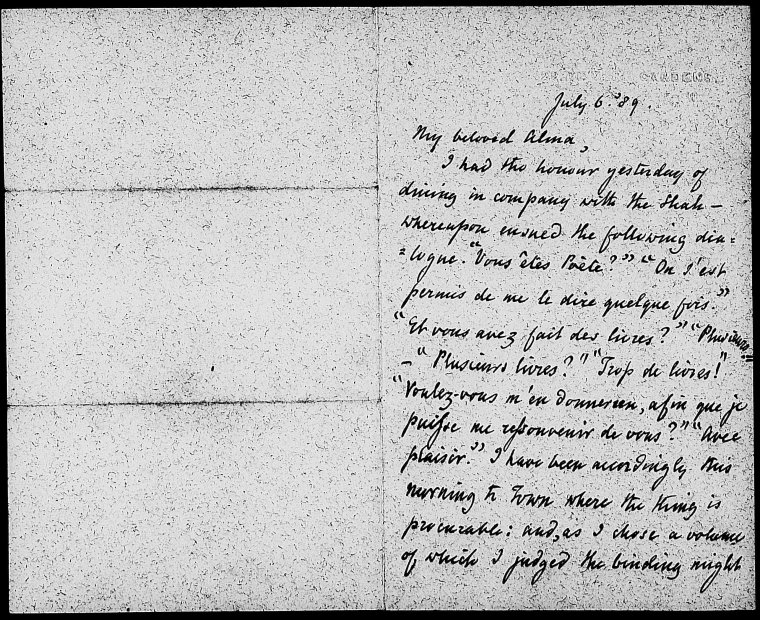 GARDENS
July 6. '89.
My beloved Alma,
I had the honour yesterday of
dining in company with the Shah —
whereupon ensued the following dia=
=logue. "Vous êtes Poète?" "On s'est
permis de me le dire quelque fois."
"Et vous avez fait des livres?" "Plusieurs"
— "Plusieurs livres?" "Trop de livres!"
"Voulez-vous m'en donner un, afin que je
puisse me ressouvenir de vous?" "Avec
plaisir." I have been accordingly this
morning to Town where the thing is
procurable: and, as I chose a volume
of which I judged the binding might